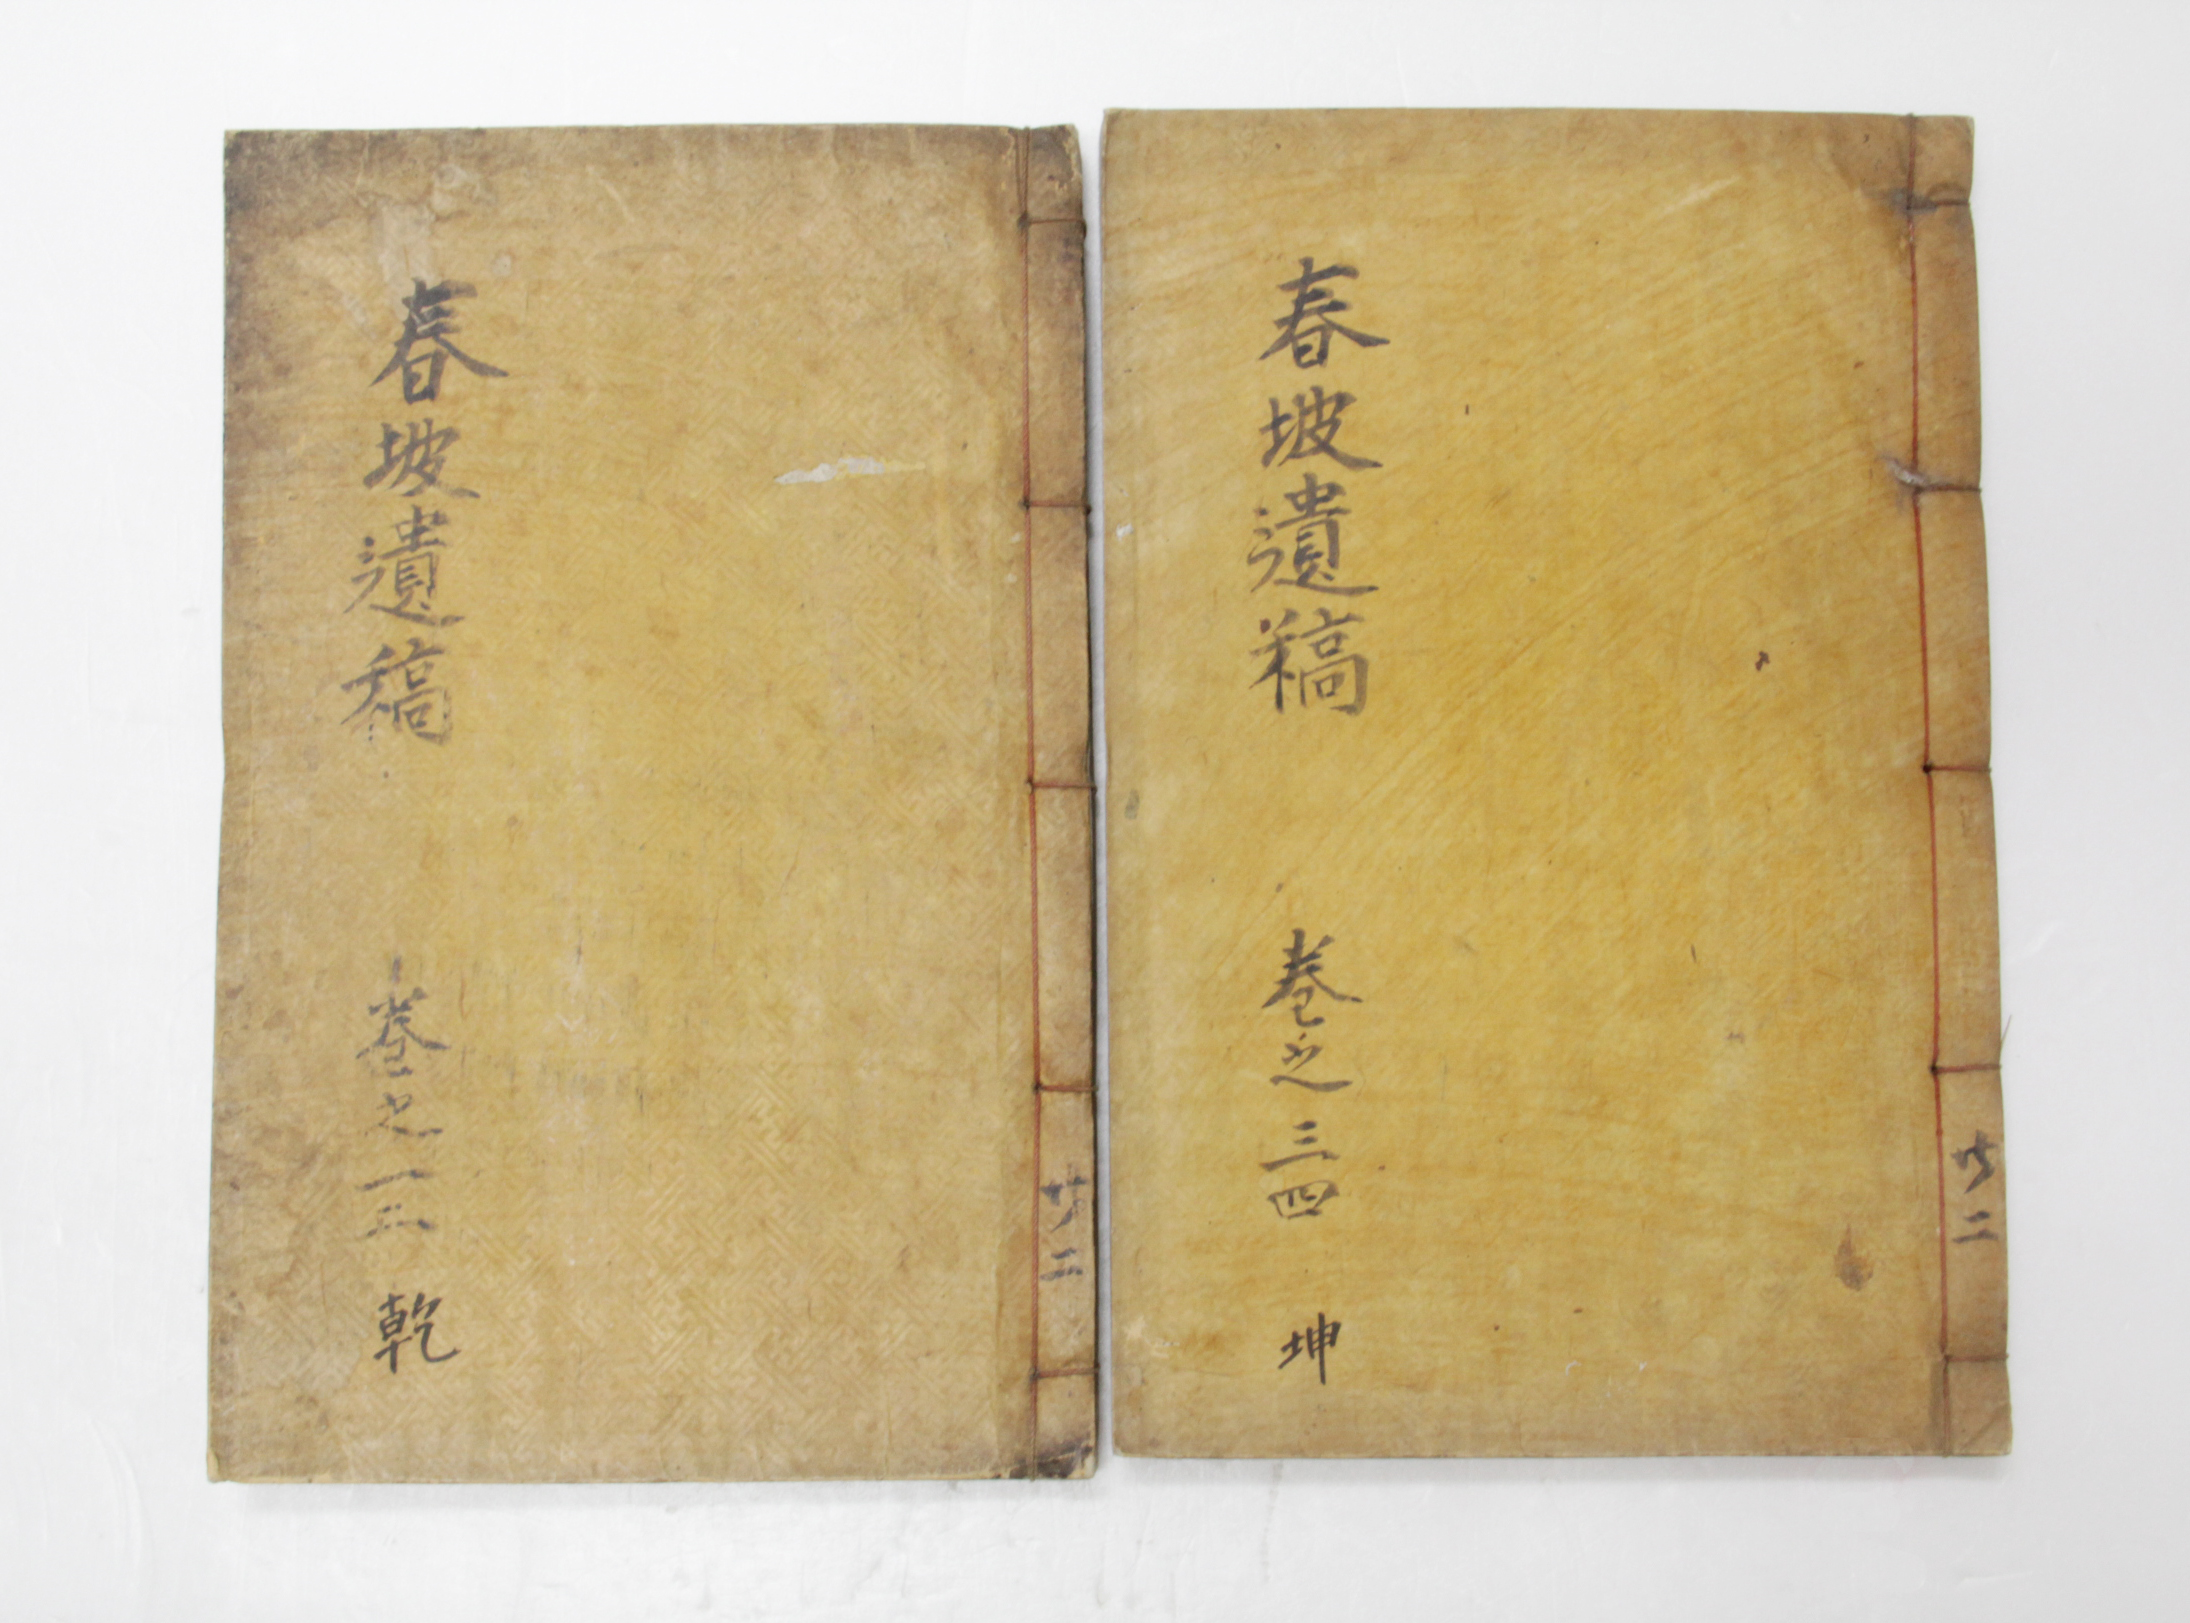 春坡遺稿
卷之一二 乾
共二
春坡遺稿
卷之三四 坤
共二